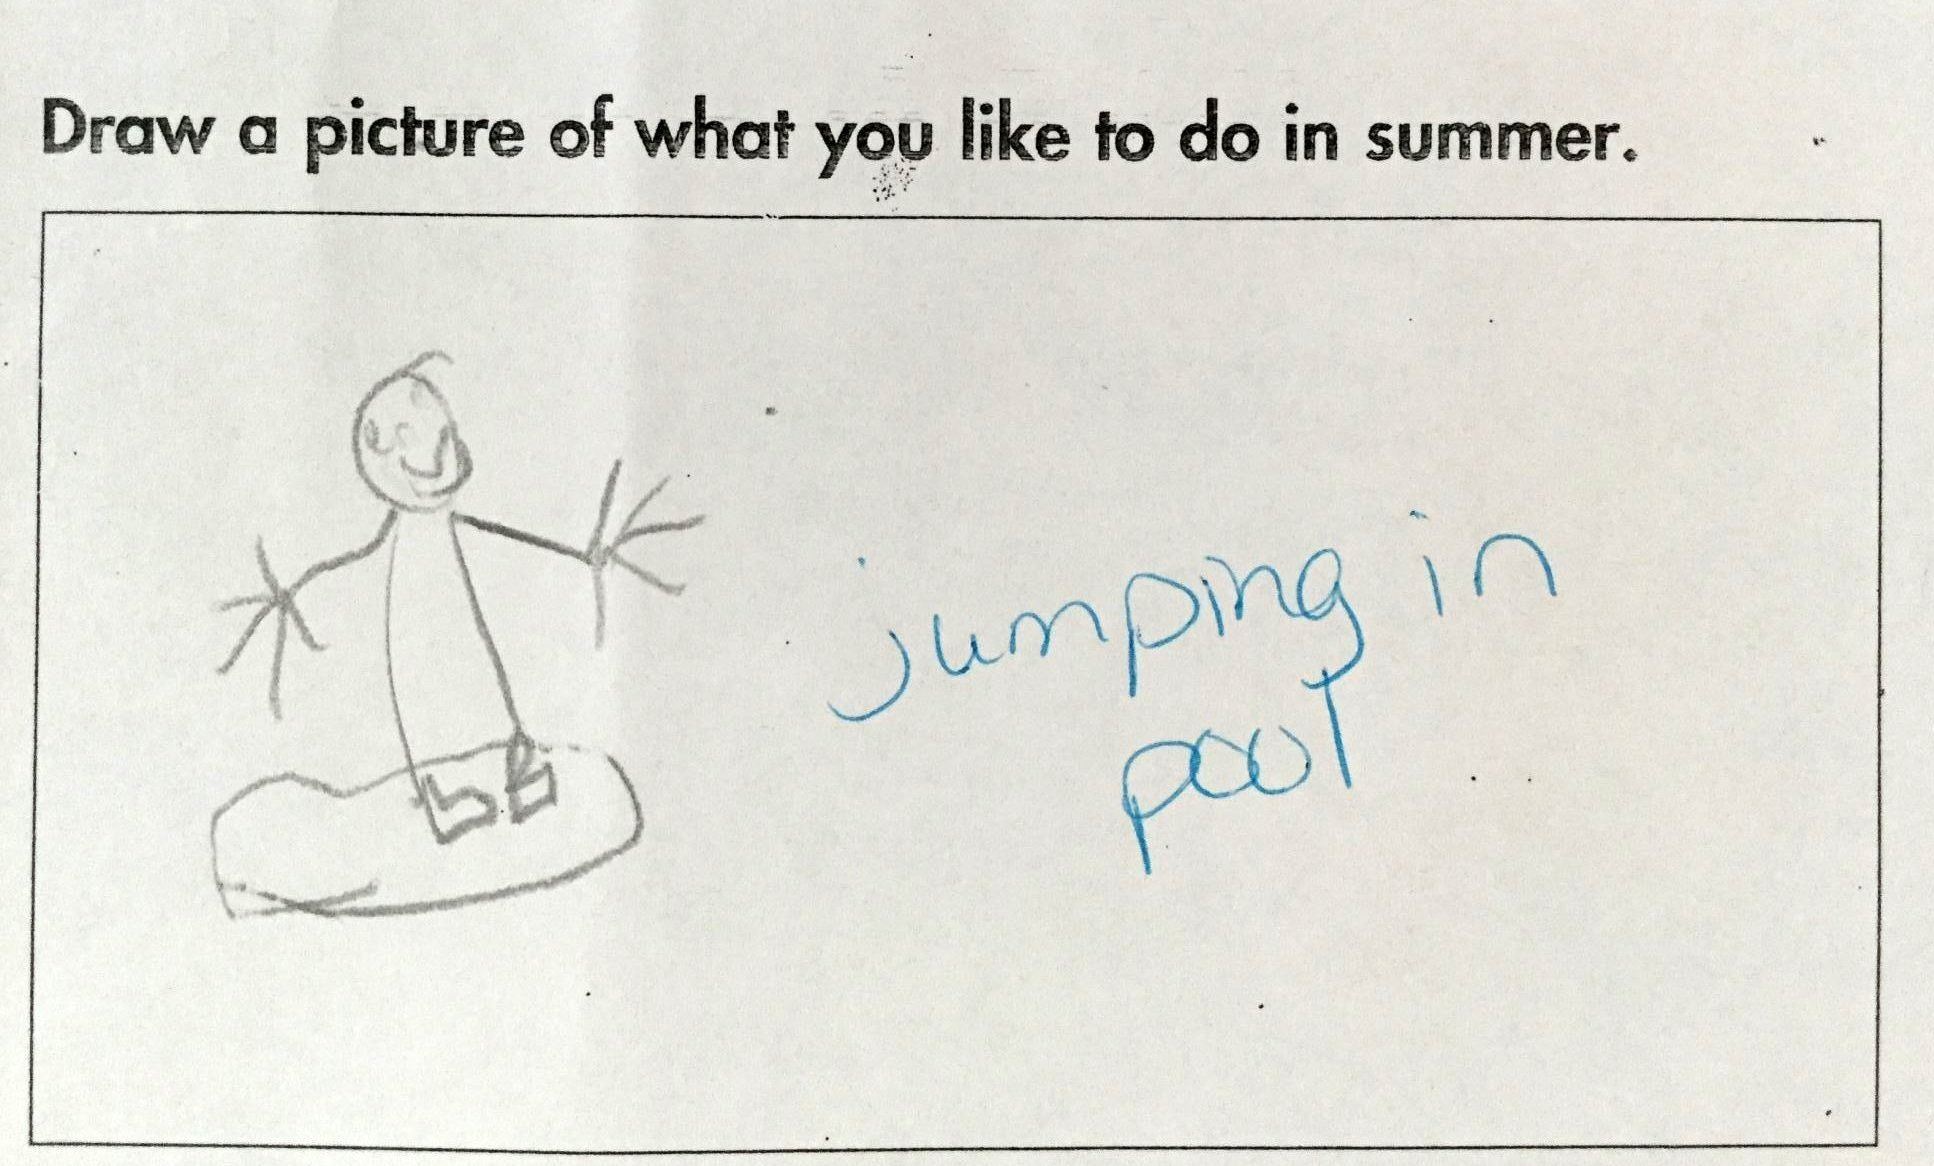 Draw a picture of what you like to do in summer.
jumping in
pool